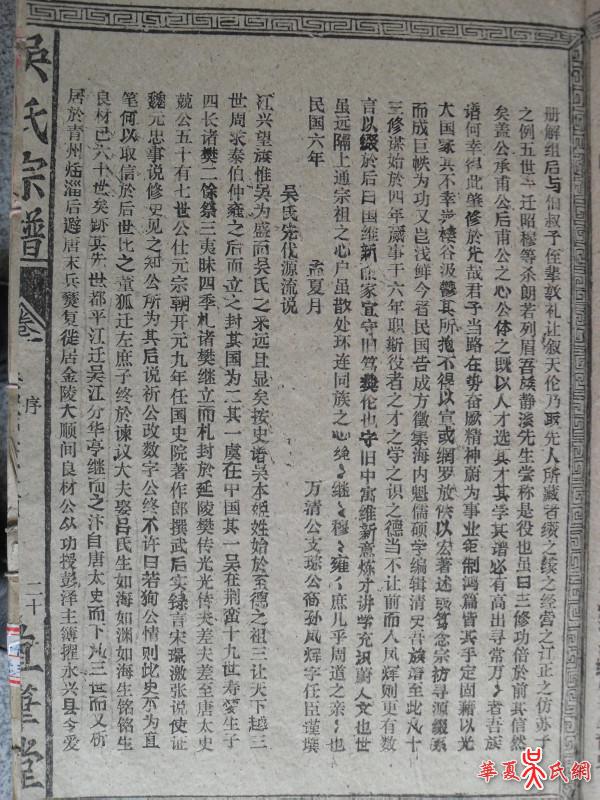 册解组后与伯叔子侄辈敦礼让叙天伦乃取先人所藏者缀之续之经营之订正之仿苏子
之例五世一迁昭穆等杀朗若列眉吾族静溪先生尝称是役也虽曰三修功倍於前其信然
矣盖公承甫公后甫公之心公体之既以人才选其才其学其谱必有高出寻常万〻者吾族
语何幸得此肇修於先哉君子当路在势奋厥精神蔚为事业钜制鸿篇皆其手定固藉以光
大国家其不幸 栖谷汲郁其所抱不得以宣或网罗放佚以宏著述或笃念宗祊寻源缀系
而成巨帙为功又岂浅鲜今吾民国告成方徵集海内魁儒硕学编辑清史吾族谱至此凡十
三修谋始於四年蒇事于六年职斯役者之才之学之识之德当不让前而人凤辉则更有数
言以缀於后曰国维新而家宜守旧笃彝伦也守旧中寓维新意炼才讲学充识蔚人文也世
虽远隔上通宗祖之心户虽散处环连同族之心绳〻继〻穆〻雍〻庶几乎周道之亲〻也
民国六年 孟夏月 万清公支琢公裔孙凤辉字任臣谨撰
吴氏先代源流说
江兴望族惟吴为盛而吴氏之来远且显矣按史谱吴本姬姓始於至德之祖三让天下越三
世周求泰伯仲雍之后而立之封其国为二其一虞在中国其一吴在荆蛮十九世寿梦生子
四长诸樊二馀祭三夷昧四季札诸樊继立而札封於延陵樊传光光传夫差夫差至唐太史
兢公五十有七世公仕元宗朝开元九年任国史院著作郎撰武后实录言宋璟激张说使证
魏元忠事说修史见之知公所为其后说祈公改数字公终不许曰若狥公情则此史不为直
笔何以取信於后世比之董狐迁左庶子终於谏议大夫娶吕氏生如海如渊如海生铭铭生
良材已六十世矣跡其先世都平江迁吴江分华亭继而之汴自唐太史而下凡三世而又析
居於青州临淄后避唐末兵燹复徙居金陵大顺间良材公以功授彭泽主簿擢永兴县令爱
吴氏宗谱 卷 序 二十
華夏吴氏網